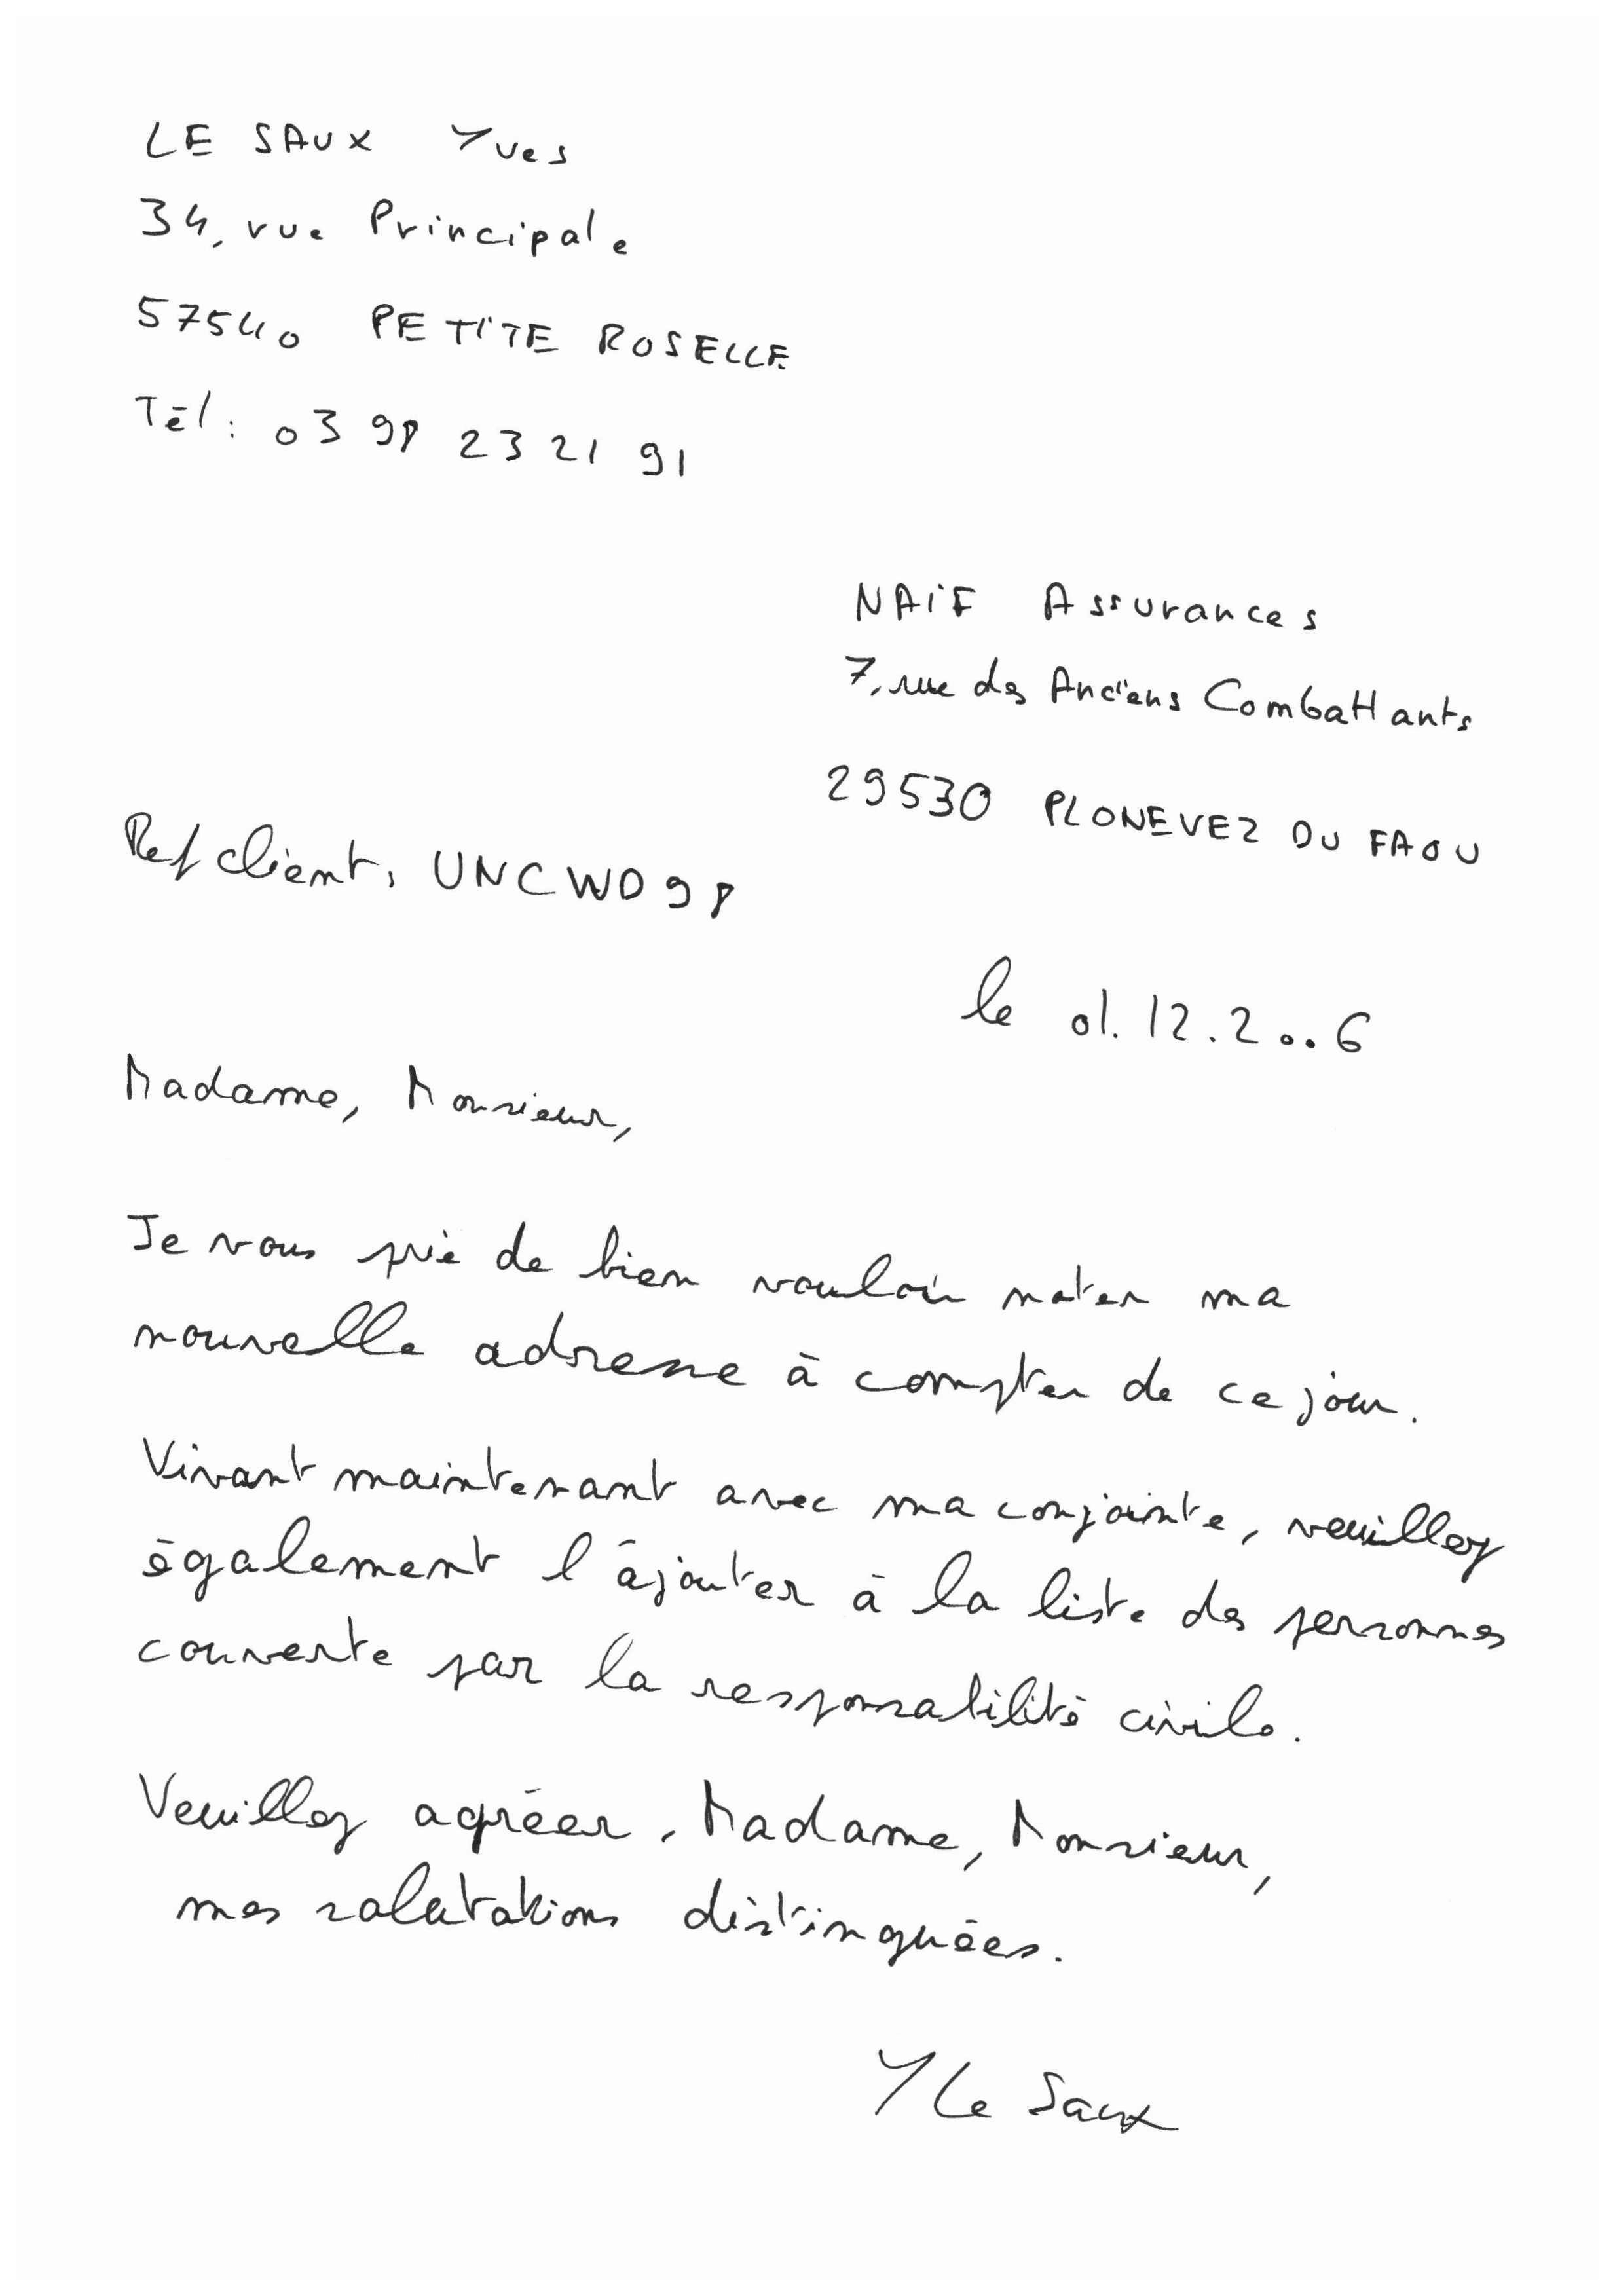 LE SAUX Yves
34, rue Principale
57540 PETITE ROSELLE
Tél: 03 98 23 21 91
NAIF Assurances
7, rue des Anciens Combattants
29530 PLONEVEZ DU FAOU
Ref client, UNCWD98
le 01.12.2006
Madame, Monsieur,
Je vous prie de bien vouloir noter ma
nouvelle adresse à compter de ce jour.
Vivant maintenant avec ma conjointe, veuillez
également l'ajouter à la liste des personnes
couverte par la responsabilité civile.
Veuillez agréer, Madame, Monsieur,
mes salutations distinguées.
Y Le Saux